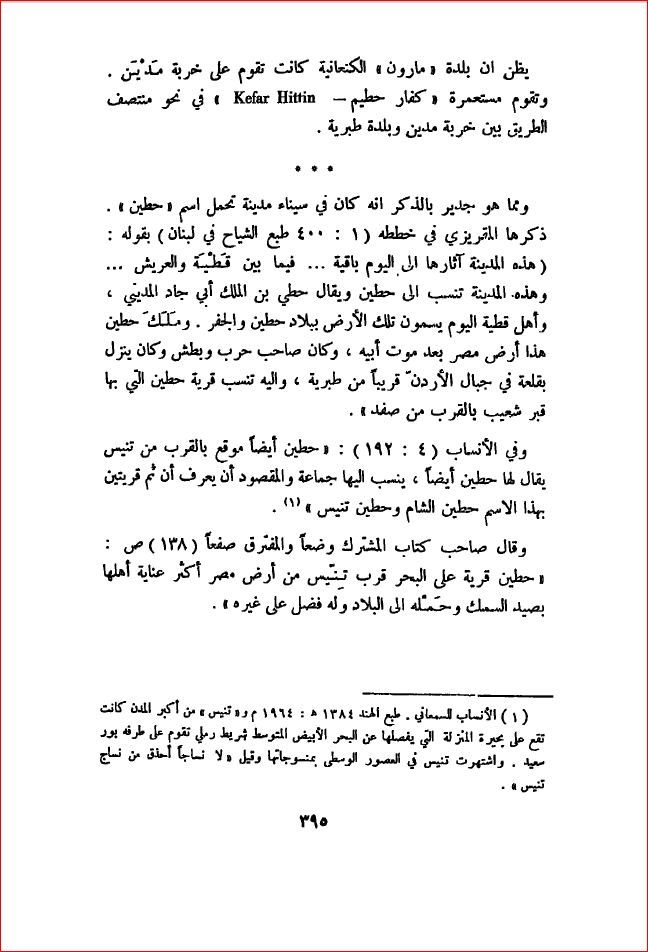 يظن ان بلدة « مارون » الكنعانية كانت تقوم على خربة مَدْيَن .
وتقوم مستعمرة « كفار حطيم – Kefar Hittin » في نحو منتصف
الطريق بين خربة مدين وبلدة طبرية .
* * *
ومما هو جدير بالذكر انه كان في سيناء مدينة تحمل اسم « حطين » .
ذكرها المقريزي في خططه ( ١ : ٤٠٠ طبع الشياح في لبنان ) بقوله :
( هذه المدينة آثارها الى اليوم باقية ... فيما بين قَطْيَة والعريش ...
وهذه المدينة تنسب الى حطين ويقال حطي بن الملك أبي جاد المديني ،
وأهل قطية اليوم يسمون تلك الأرض ببلاد حطين والجفر . ومَلَكَ حطين
هذا أرض مصر بعد موت أبيه ، وكان صاحب حرب وبطش وكان ينزل
بقلعة في جبال الأردنّ قريباً من طبرية ، واليه تنسب قرية حطين التي بها
قبر شعيب بالقرب من صفد » .
وفي الأنساب ( ٤ : ١٩٢ ) : « حطين أيضاً موقع بالقرب من تنيس
يقال لها حطين أيضاً ، ينسب اليها جماعة والمقصود أن يعرف أن ثم قريتين
بهذا الاسم حطين الشام وحطين تنيس » (١) .
وقال صاحب كتاب المشترك وضعاً والمفترق صقعاً ( ١٣٨ ) ص :
« حطين قرية على البحر قرب تِنّيس من أرض مصر أكثر عناية أهلها
بصيد السمك وحَمْله الى البلاد وله فضل على غيره » .
( ١ ) الأنساب للسمعاني . طبع الهند ١٣٨٤ ه : ١٩٦٤ م و « تنيس » من أكبر المدن كانت
تقع على بحيرة المنزلة التي يفصلها عن البحر الأبيض المتوسط شريط رملي تقوم على طرفه بور
سعيد . واشتهرت تنيس في العصور الوسطى بمنسوجاتها وقيل « لا نساجاً أحذق من نساج
تنيس » .
٣٩٥